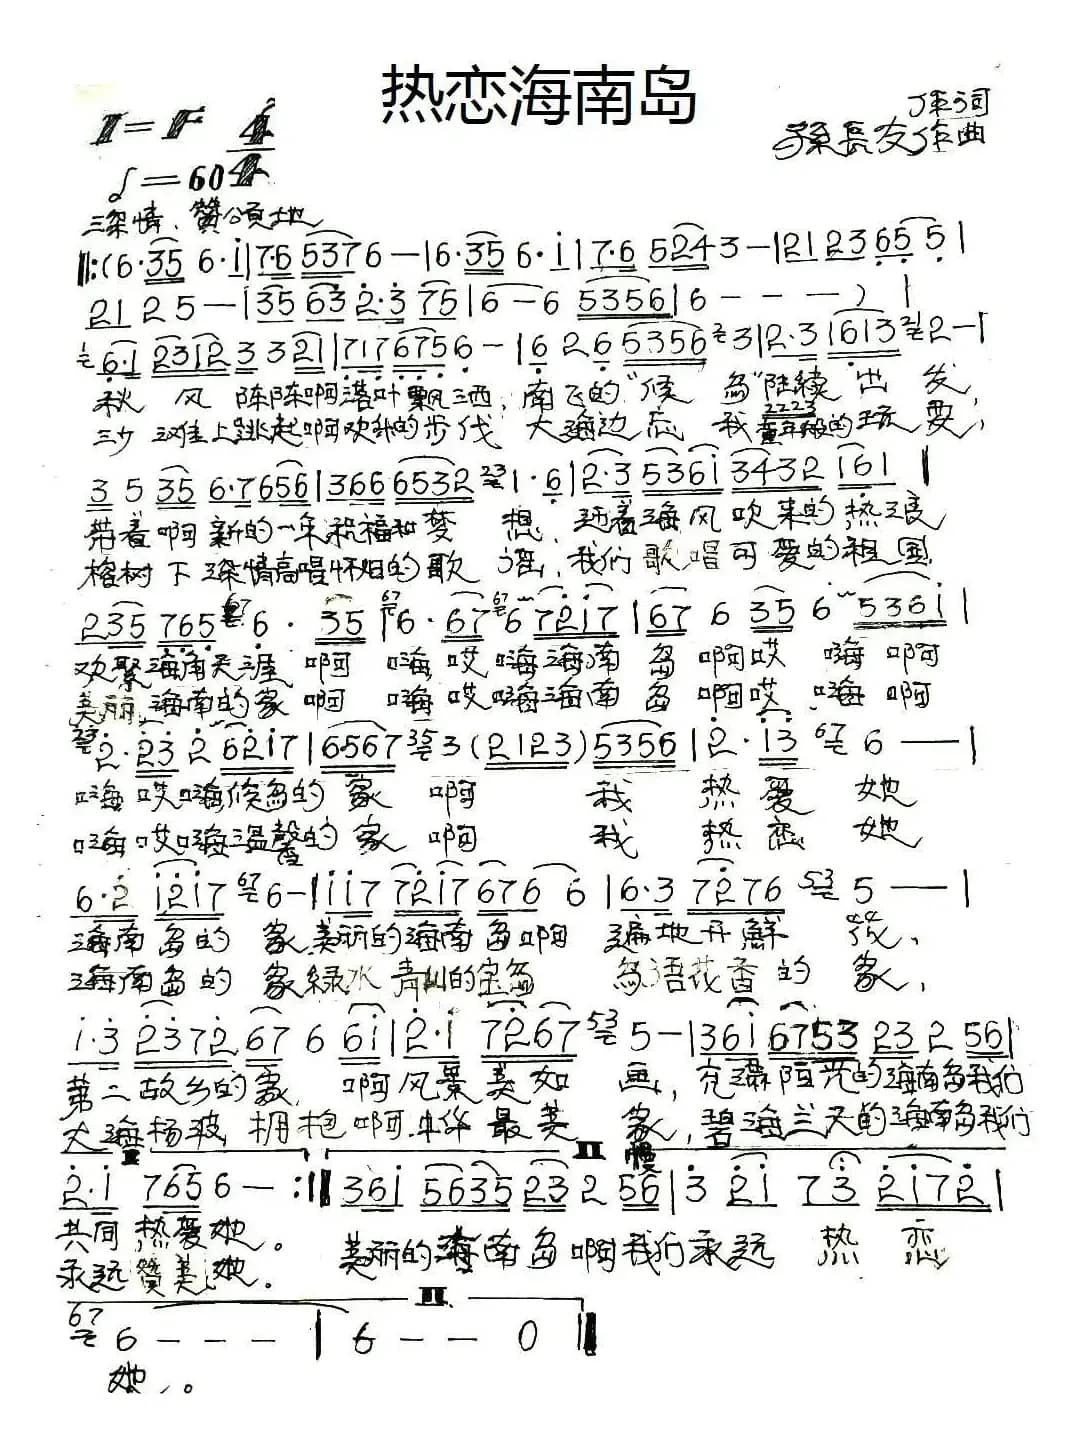 热恋海南岛
1=F 4/4
作词
孫長友作曲
♩=60
深情、赞颂地
‖:(6·35 6·i|7·6 5376—|6·35 6·i|7·6 5243—|21 2365 5|
21 25—|35 63 2·3 75|6—6 5356|6———)|
6·1 2312 3 321|717 6756—|6 26 5356 3|2·3 1613 2—|
秋风阵阵啊落叶飘洒,南飞的“候鸟”陆续出发,
沙滩上跳起啊欢快的步伐 大海边忘我 的玩耍,
3 5 35 6·7 656|366 6532 1·6|2·3 536i 3432 161|
带着啊新的一年祝福和梦想,迎着海风吹来的热浪
榕树下深情高唱怀旧的歌谣,我们歌唱可爱的祖国
235 765 6·35|6·67 6 72i7|67 6 35 6 536i|
欢聚海角天涯啊嗨哎嗨海南岛啊哎嗨啊
美丽海南的家啊嗨哎嗨海南岛啊哎嗨啊
2·23 2 62i7|6567 3(2123)5356|2·i3 6——|
嗨哎嗨候鸟的家啊我热爱她
嗨哎嗨温馨的家啊我热恋她
6·2 i2i7 6—|ii7 72i7 676 6|6·3 7276 5——|
海南岛的家美丽的海南岛啊遍地开鲜花,
海南岛的家绿水青山的宝岛鸟语花香的家,
i·3 2372 67 6 6i|2·i 7267 5—|36i 6753 23 2 56|
第二故乡的家,啊风景美如画,充满阳光的海南岛我们
大海扬波,拥抱啊 最美家,碧海兰天的海南岛我们
I II 慢
2·i 765 6—:‖36i 5635 23 2 56|3 2i 73 2i72|
共同热爱她。美丽的海南岛啊我们永远热恋
永远赞美她。
II
6———|6——0‖
她。